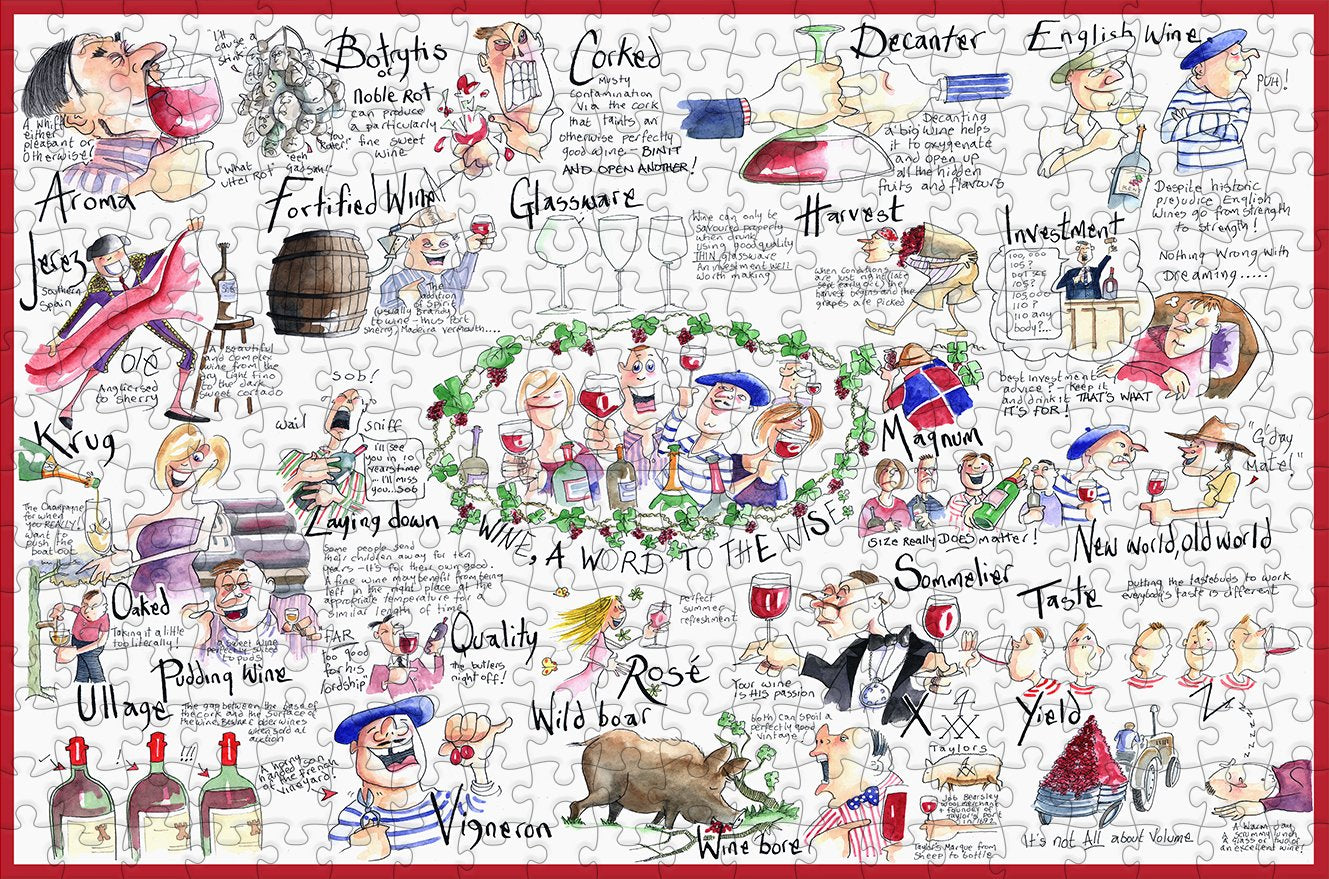 Aroma
A whiff
either
pleasant or
otherwise!
Botrytis
or
noble Rot
can produce
a particularly
fine sweet
wine
"what
utter Rot
Corked
Musty
contamination
via the cork
that taints an
otherwise perfectly
good wine - BIN IT
AND OPEN ANOTHER!
Decanter
Decanting
a big wine helps
it to oxygenate
and open up
all the hidden
fruits and flavours
English Wine
PUH!
Despite historic
prejudice English
wines go from strength
to strength!
Fortified Wine
The
addition
of spirit
(usually Brandy)
to wine - thus Port
Sherry, Madeira Vermouth....
Glassware
Wine can only be
savoured properly
when drunk
using good quality
THIN glassware
An investment WELL
worth making
Harvest
when conditions
are just right (late
sept early oct) the
harvest begins and the
grapes are picked
Investment
100,000
105?
105?
105,000
110?
110 any
body?...
Nothing Wrong with
Dreaming.....
best investment
advice? - keep it
and drink it THAT'S WHAT
IT'S FOR!
Jerez
Southern
Spain
Olé
Anglicised
to sherry
A Beautiful
and complex
wine from the
dry light fino
to the dark
sweet cortado
Krug
The Champagne
for when
you REALLY!
want to
push the
boat out
sob!
wail
sniff
I'll see
you in 10
years time
... I'll miss
you...sob
Laying down
Some people send
their children away for ten
years - it's for their own good.
A fine wine may benefit from being
left in the right place at the
appropriate temperature for a
similar length of time
WINE, A WORD TO THE WISE
Magnum
Size Really DOES matter!
"G'day
Mate!"
New world, old world
Oaked
Taking it a little
too literally!
Pudding Wine
a sweet wine
perfectly suited
to puds
Quality
FAR
too good
for his
lordship"
the butlers
night off!
Rosé
perfect
summer
refreshment
Sommelier
Your wine
is HIS passion
Taste
putting the tastebuds to work
everybody's taste is different
Ullage
The gap between the base of
the cork and the surface of
the wine. Beware older wines
when sold at
auction
!
!!!
Vigneron
A horny
handed son
of the French
vineyard!
Wild boar
both can spoil a
perfectly good
vintage
Wine bore
X
Taylors
Job Bearsley
wool merchant
+ founder of
Taylor's port
in 1692
Taylor's Marque from
sheep to bottle
Yield
It's not All about Volume
Zzzzzzz
A warm day,
a scrummy lunch
a glass or two of
an excellent wine!